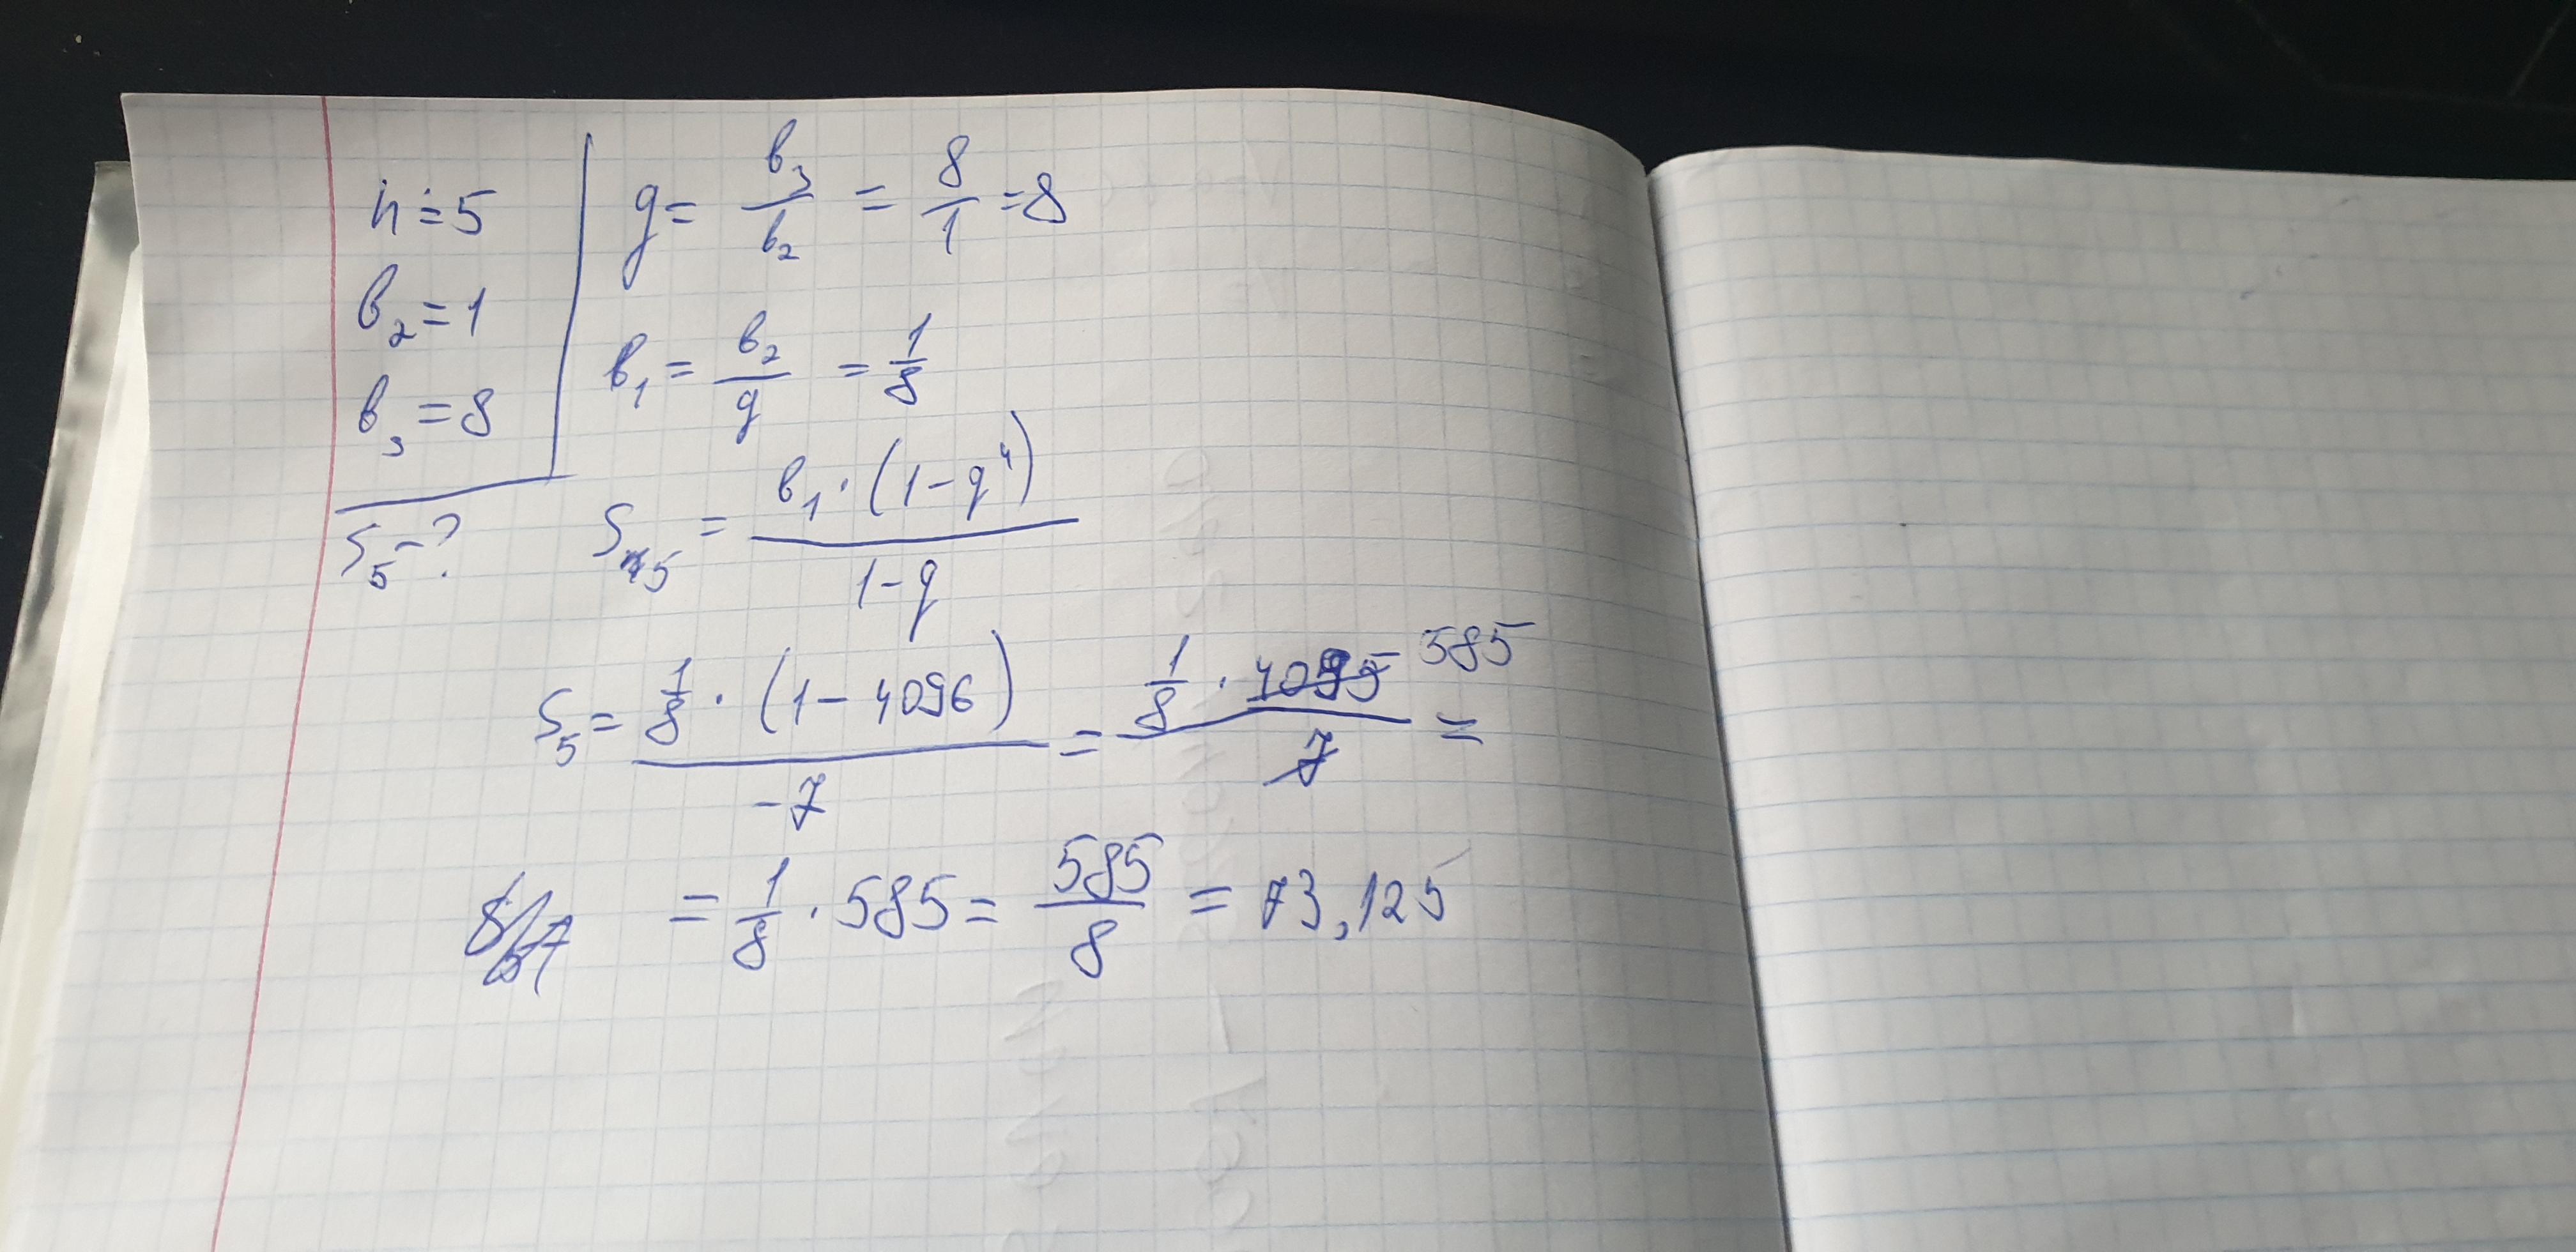 n = 5
b₂ = 1
b₃ = 8
S₅ - ?
q = b₃/b₂ = 8/1 = 8
b₁ = b₂/q = 1/8
S₅ = b₁ · (1 - q⁴) / 1 - q
S₅ = 1/8 · (1 - 4096) / -7 = 1/8 · 4095 / 7 = 585
= 1/8 · 585 = 585/8 = 73,125